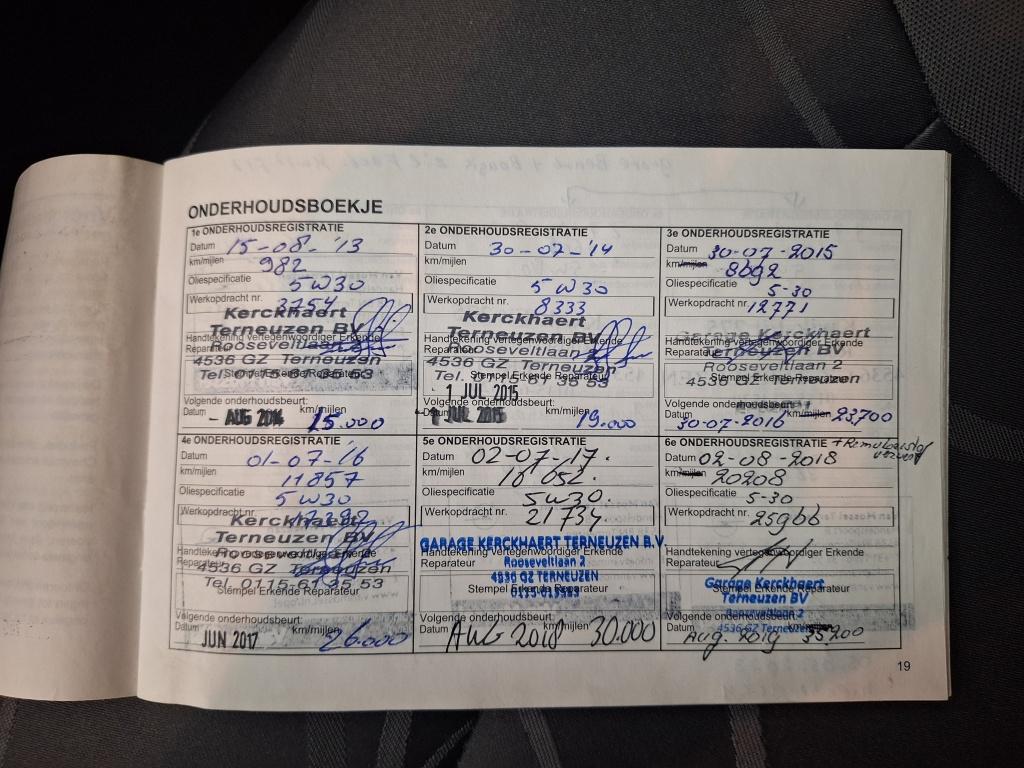 ONDERHOUDSBOEKJE
1e ONDERHOUDSREGISTRATIE
Datum 15-08-'13
km/mijlen 982
Oliespecificatie 5W30
Werkopdracht nr. 3754
Kerckhaert
Terneuzen BV
Handtekening vertegenwoordiger Erkende
Reparateur
Rooseveltlaan
4536 GZ Terneuzen
Stempel Erkende Reparateur
Volgende onderhoudsbeurt:
Datum - AUG 2014 km/mijlen 15.000
2e ONDERHOUDSREGISTRATIE
Datum 30-07-'14
km/mijlen
Oliespecificatie 5W30
Werkopdracht nr. 8333
Kerckhaert
Terneuzen BV
Handtekening vertegenwoordiger Erkende
Reparateur
Rooseveltlaan
4536 GZ Terneuzen
Tel. 0115-61 35 53
Stempel Erkende Reparateur
- 1 JUL 2015
Volgende onderhoudsbeurt:
Datum JUL 2015 km/mijlen 19.000
3e ONDERHOUDSREGISTRATIE
Datum 30-07-2015
km/mijlen 8692
Oliespecificatie 5-30
Werkopdracht nr. 12771
Kerckhaert
Handtekening vertegenwoordiger Erkende
Reparateur
Terneuzen BV
Rooseveltlaan 2
4536 GZ Terneuzen
Stempel Erkende Reparateur
Volgende onderhoudsbeurt:
Datum 30-07-2016 km/mijlen 23700
4e ONDERHOUDSREGISTRATIE
Datum 01-07-'16
km/mijlen 11857
Oliespecificatie 5W30
Werkopdracht nr.
Kerckhaert
Terneuzen BV
Handtekening vertegenwoordiger Erkende
Reparateur
Rooseveltlaan
4536 GZ Terneuzen
Tel. 0115-61 35 53
Stempel Erkende Reparateur
Volgende onderhoudsbeurt:
Datum JUN 2017 km/mijlen 26.000
5e ONDERHOUDSREGISTRATIE
Datum 02-07-17.
km/mijlen 16 052.
Oliespecificatie 5W30.
Werkopdracht nr. 21734
GARAGE KERCKHAERT TERNEUZEN B.V.
Handtekening vertegenwoordiger Erkende
Reparateur
Rooseveltlaan 2
4536 GZ TERNEUZEN
Stempel Erkende Reparateur
Volgende onderhoudsbeurt:
Datum AUG 2018 km/mijlen 30.000
6e ONDERHOUDSREGISTRATIE
Datum 02-08-2018
km/mijlen 20208
Oliespecificatie 5-30
Werkopdracht nr. 25966
Handtekening vertegenwoordiger Erkende
Reparateur
Garage Kerckhaert
Stempel Erkende Reparateur
Terneuzen BV
Rooseveltlaan 2
Volgende onderhoudsbeurt:
4536 GZ Terneuzen
Datum Aug. 2019 km/mijlen 35200
19